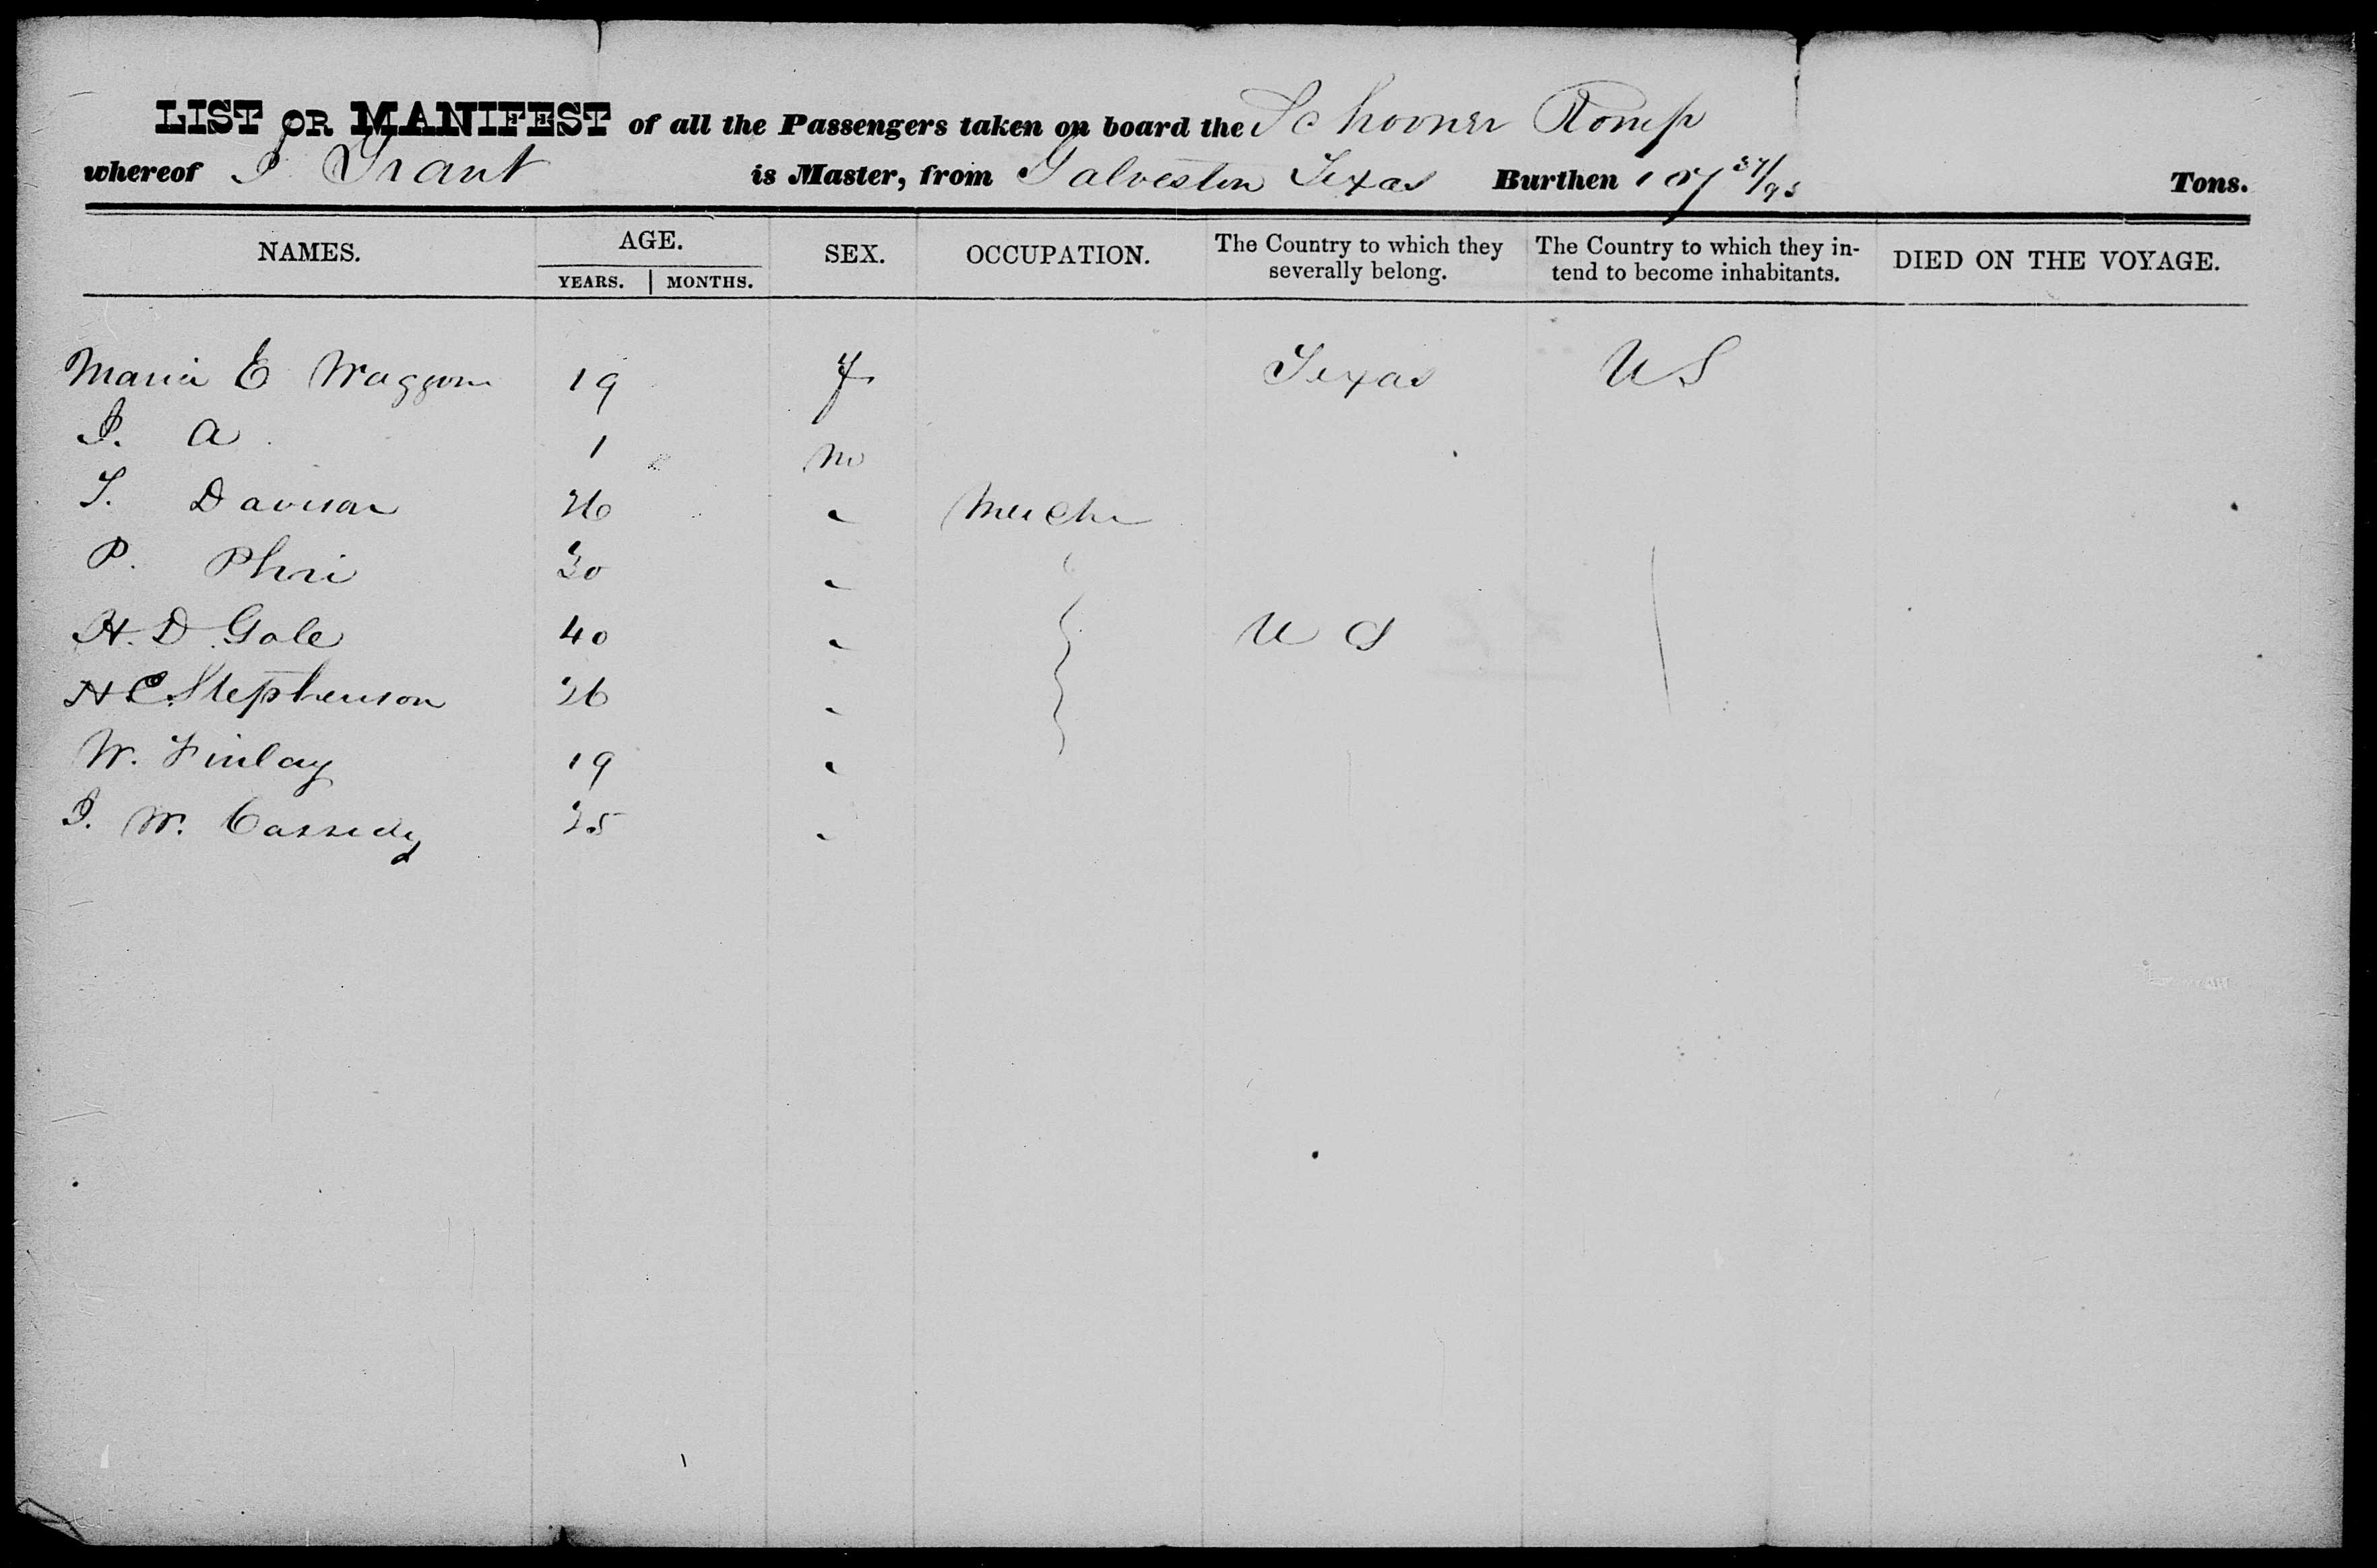 LIST OR MANIFEST of all the Passengers taken on board the Schooner Romp
whereof J Grant is Master, from Galveston Texas Burthen 107 37/95 Tons.
NAMES. AGE. YEARS. MONTHS. SEX. OCCUPATION. The Country to which they severally belong. The Country to which they intend to become inhabitants. DIED ON THE VOYAGE.
Maria E Waggom 19 f Texas US
J. A 1 m
T. Davison 26 " Merch
P. 30 "
H. D Gale 40 " U S
H C Stephenson 26 "
W. Finlay 19 "
J. W. Cassedy 25 "